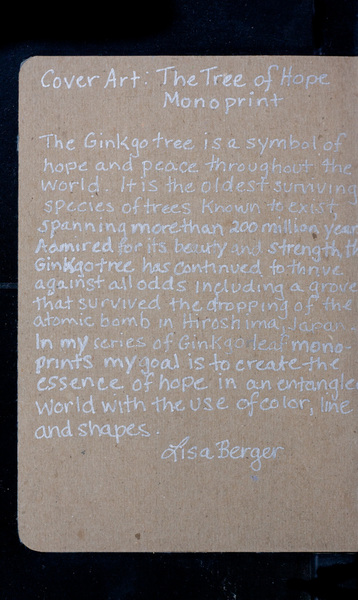 Cover Art: The Tree of Hope
Monoprint
The Ginkgo tree is a symbol of
hope and peace throughout the
world. It is the oldest surviving
species of trees known to exist,
spanning more than 200 million year
Admired for its beauty and strength, th
Ginkgo tree has continued to thrive
against all odds including a grove
that survived the dropping of the
atomic bomb in Hiroshima, Japan.
In my series of Ginkgo leaf mono-
prints my goal is to create the
essence of hope in an entangle
world with the use of color, line
and shapes.
Lisa Berger